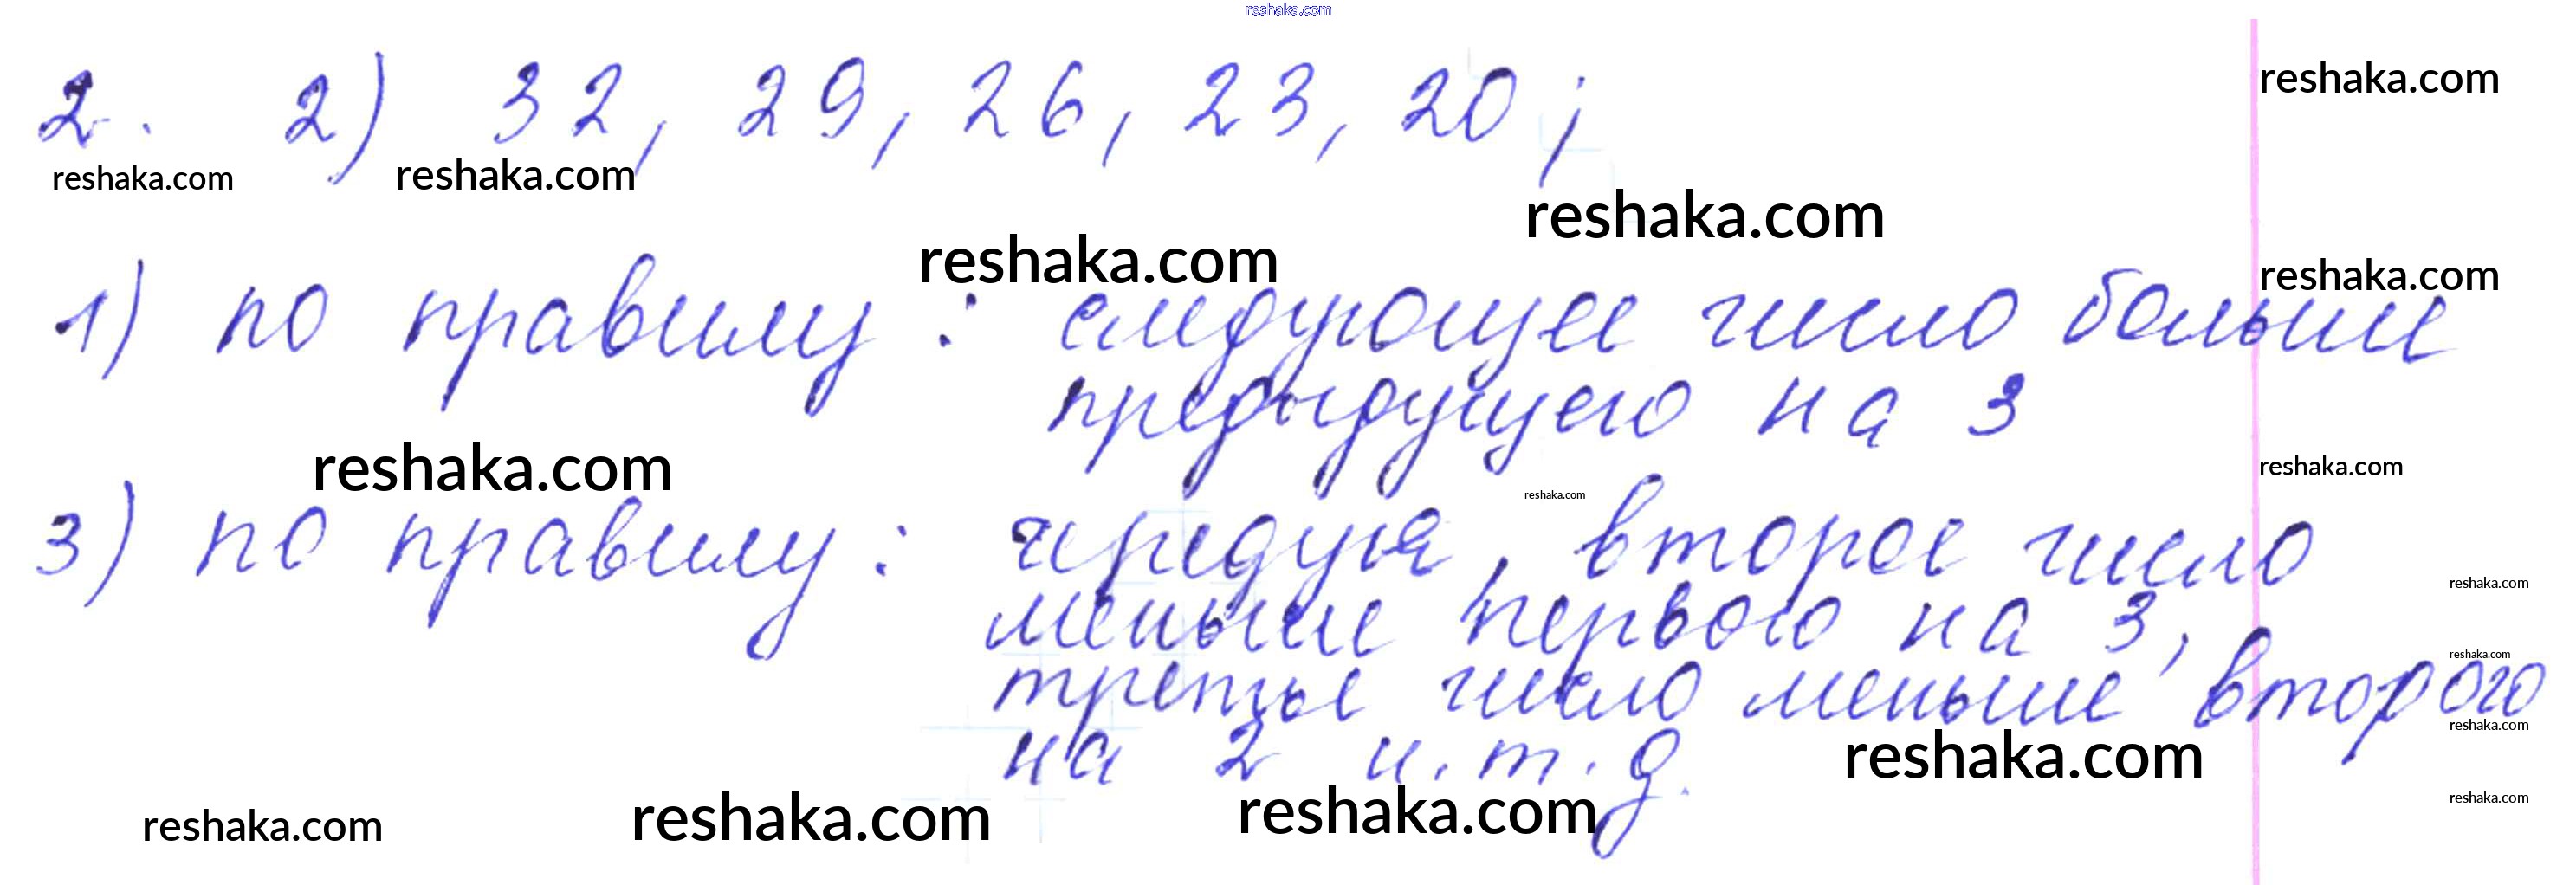 reshaka.com
2. 2) 32, 29, 26, 23, 20;
reshaka.com
reshaka.com
reshaka.com
reshaka.com
reshaka.com
1) по правилу: следующее число больше
reshaka.com
предыдущего на 3
reshaka.com
reshaka.com
reshaka.com
3) по правилу: чередуя, второе число
reshaka.com
меньше первого на 3,
reshaka.com
третье число меньше второго
reshaka.com
на 2 и.т.д.
reshaka.com
reshaka.com
reshaka.com
reshaka.com
reshaka.com